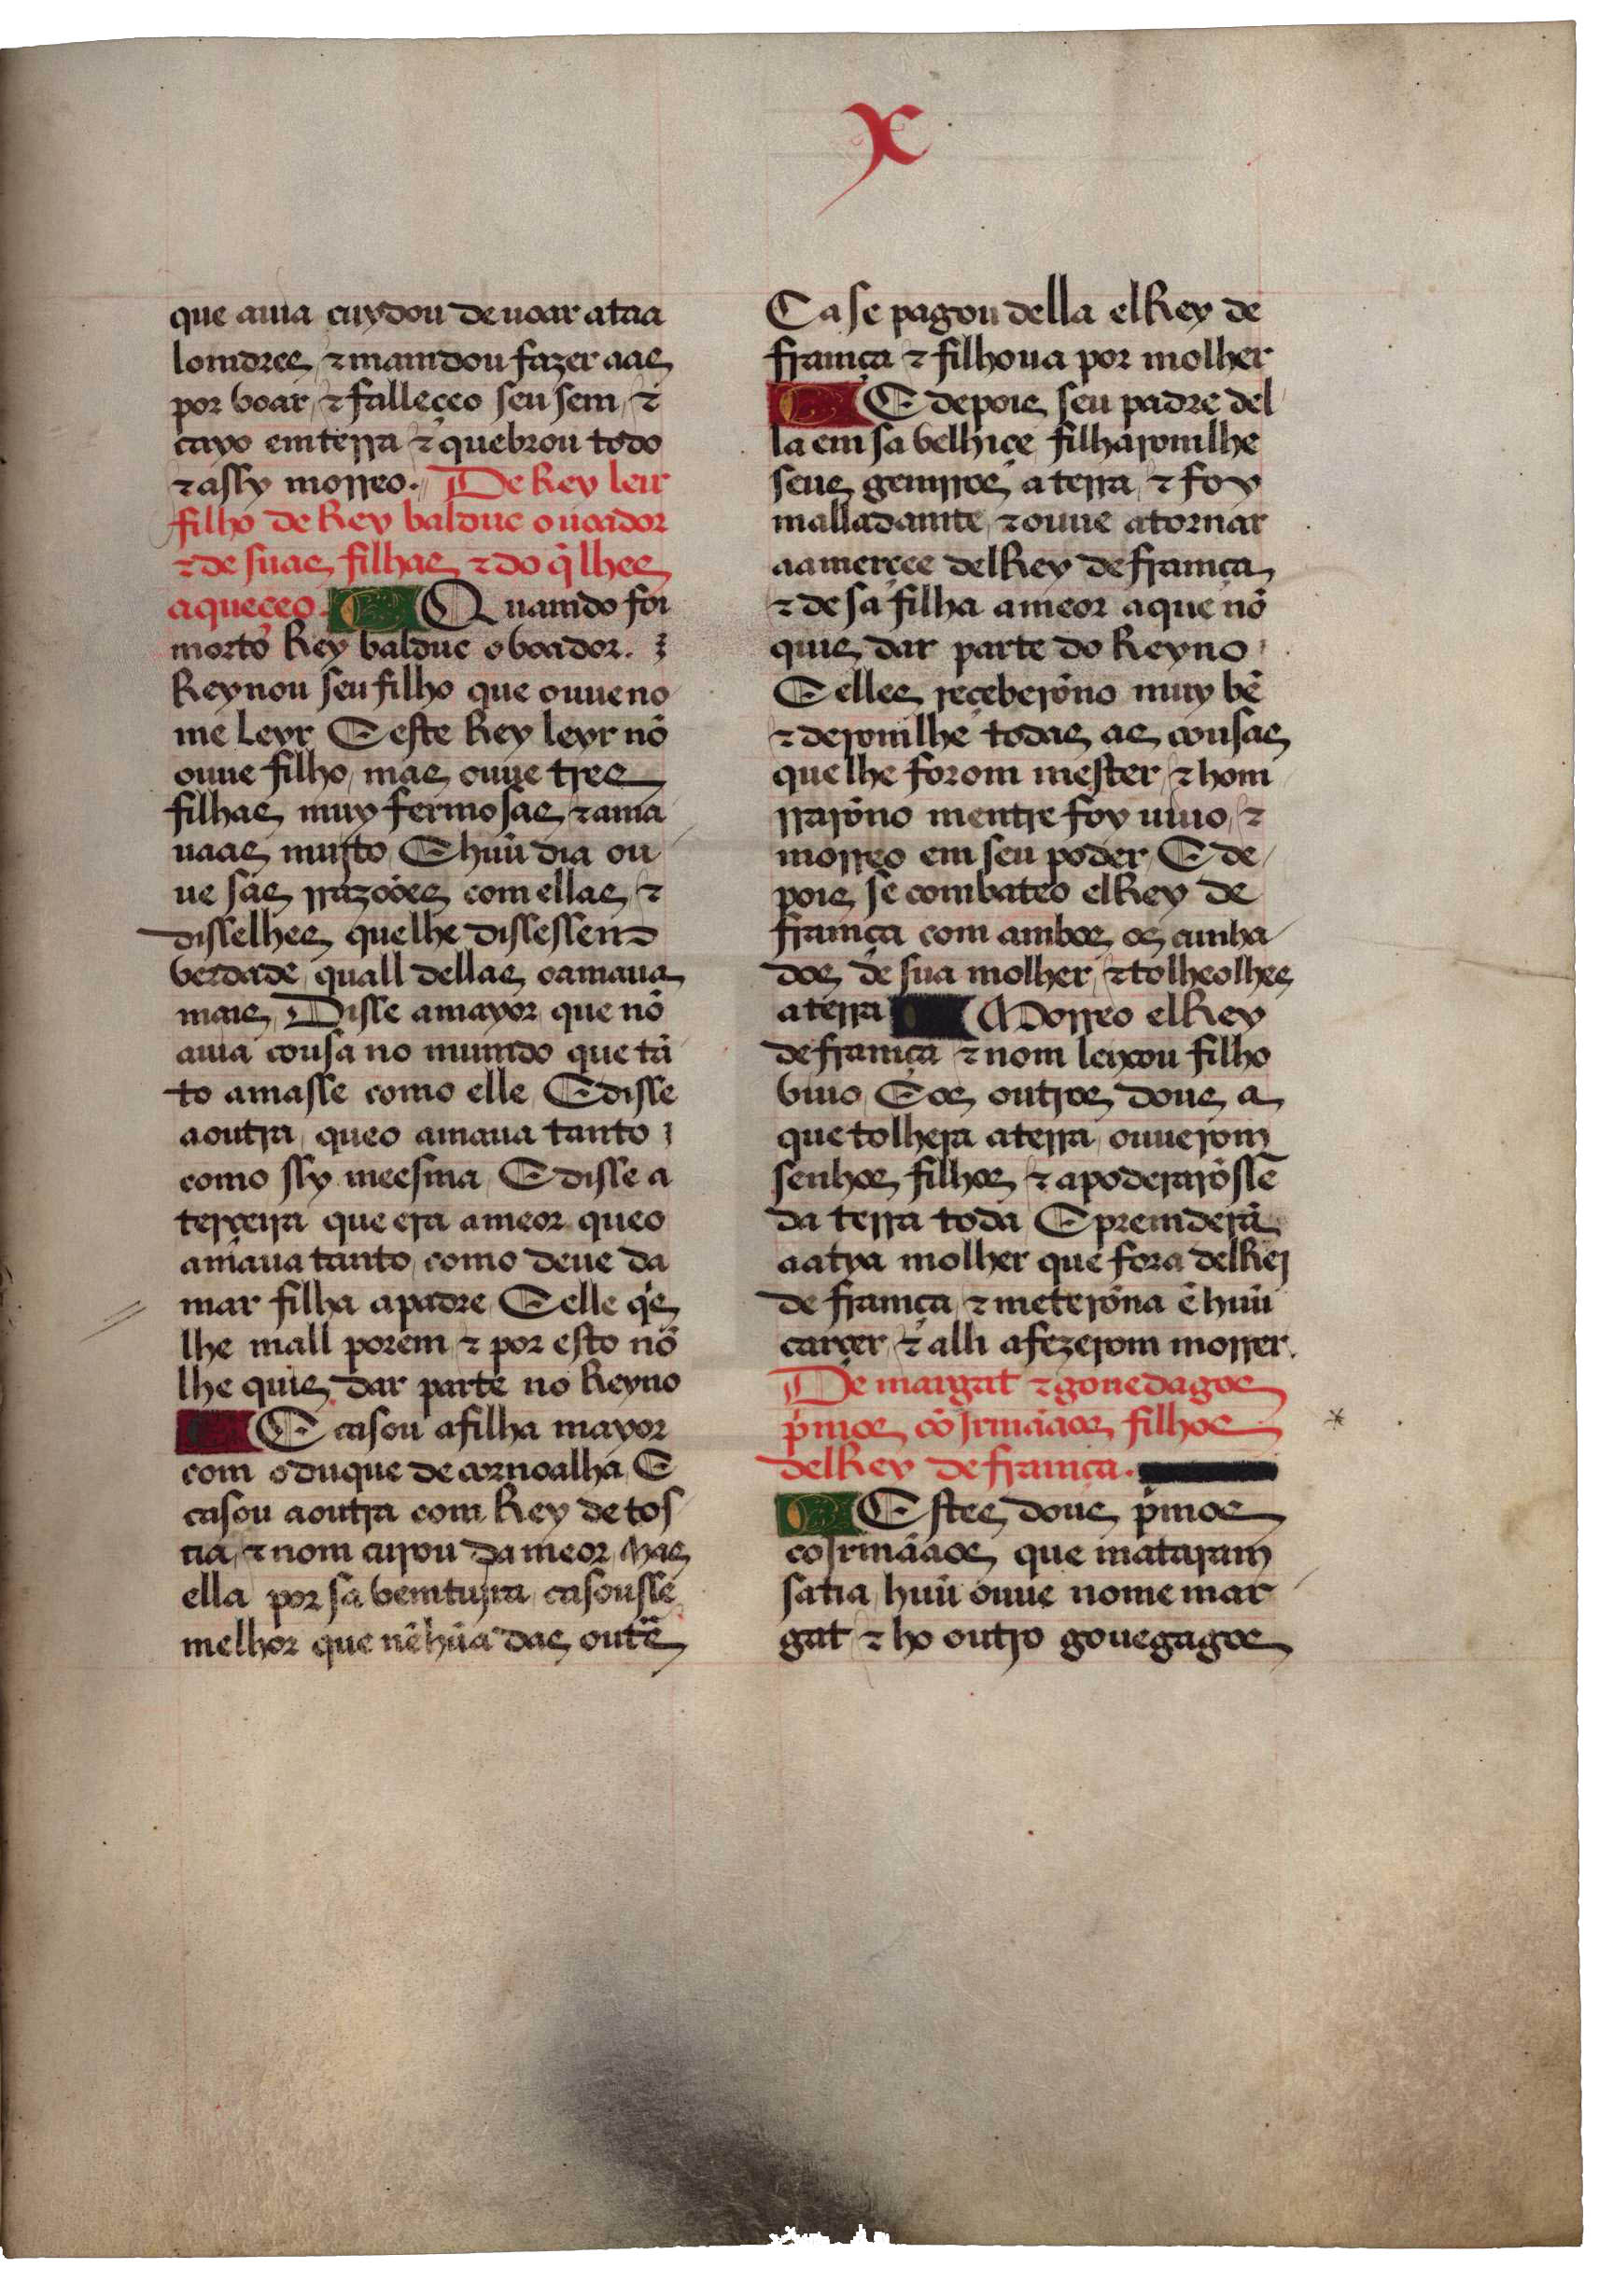 X
que auia cuydou de uoar ataa
lomdres, ⁊ mamdou fazer aas
por boar, ⁊ falleçeo seu sem, ⁊
cayo em terra ⁊ quebrou todo
⁊ assy morreo. De Rey leir
filho de Rey balduc o uoador
⁊ de suas filhas ⁊ do q̃ lhes
aqueçeo. Quamdo foi
morto Rey balduc o boador.
Reynou seu filho que ouue no
me Leyr E este Rey leyr nõ
ouue filho, mas ouue tres
filhas muy fermosas ⁊ ama
uaas muito E huũ dia ou
ue sas rrazões com ellas ⁊
disselhes que lhe dissessem
verdade, quall dellas o amaua
mais, Disse a mayor que nõ
auia cousa no mumdo que tã
to amasse como elle E disse
a outra, que o amaua tanto
como ssy meesma E disse a
terçeira que era a meor que o
amaua tanto, como deue da
mar filha a padre E elle q̃s
lhe mall porem ⁊ por esto nõ
lhe quis dar parte no Reyno
E casou a filha mayor
com o duque de cornoalha, E
casou a outra com Rey de tos
tia, ⁊ nom curou da meor, Mas
ella por sa bemtura casousse
melhor que nẽhũa das outã̃s
Ca se pagou della elRey de
framça ⁊ filhoua por molher
E depois seu padre del
la em sa velhiçe filharomlhe
seus gemrros a terra, ⁊ foy
malladamte, ⁊ ouue a tornar
aa merçee delRey de framça
⁊ de sa filha a meor a que nõ
quis dar parte do Reyno
E elles reçeberõno muy bẽ
⁊ deromlhe todas as cousas
que lhe forom mester, ⁊ hom
rrarõno mentre foy uiuo, ⁊
morreo em seu poder, E de
pois se combateo elRey de
framça com ambos os cunha
dos de sua molher, ⁊ tolheolhes
a terra Morreo elRey
de framça ⁊ nom leixou filho
viuo E os outros dous a
que tolhera a terra, ouuerom
senhos filhos ⁊ apoderarõsse
da terra toda E premderã
aa tya molher que fora delRej
de framça, ⁊ meterõna ẽ huũ
carçer, ⁊ alli a fezerom morrer.
De margat ⁊ gouedagos
p̃mos cõ Jrmãaos filhos
delRey de framça.
Estes dous p̃mos
co Jrmãaos que mataram
sa tia, huũ ouue nome mar
gat ⁊ ho outro gouegagos